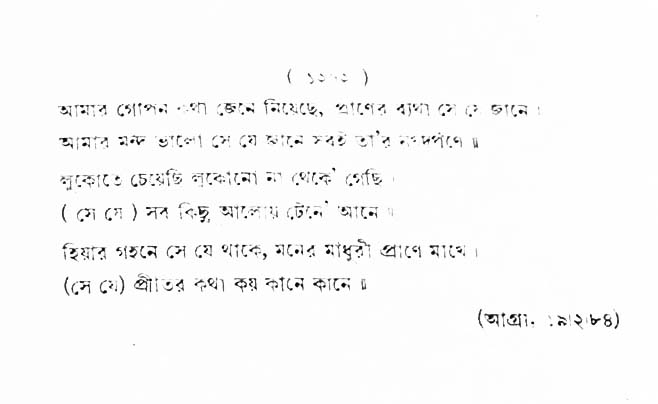 আমার গোপন কথা জেনে নিয়েছে, প্রাণের ব্যথা সে যে জানে।
আমার মন্দ ভালো সে যে জানে সবই তা'র নখদর্পণে॥
লুকোতে চেয়েছি লুকোনো না থেকে' গেছি।
( সে যে ) সব কিছু আলোয় টেনে' আনে॥
হিয়ার গহনে সে যে থাকে, মনের মাধুরী প্রাণে মাখে।
(সে যে) প্রীতির কথা কয় কানে কানে॥
(আগ্রা, ১৯।২।৮৪)